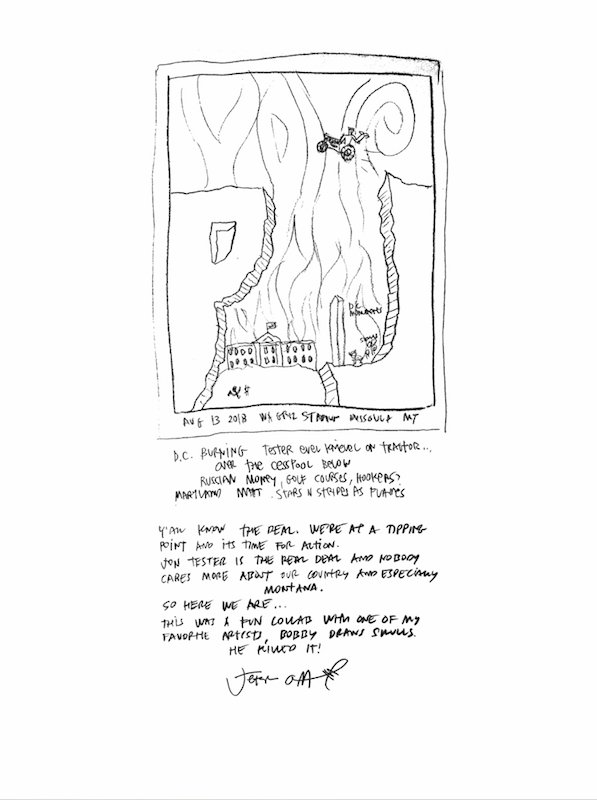 D.C.
MONUMENTS
SKULLS
AUG 13 2018 WA GRIZ STADIUM MISSOULA MT
D.C. BURNING TESTER EVEL KNIEVEL ON TRACTOR...
OVER THE CESSPOOL BELOW
RUSSIAN MONEY, GOLF COURSES, HOOKERS?
MARYLAND MATT. STARS N STRIPES AS FLAMES
Y'ALL KNOW THE DEAL. WE'RE AT A TIPPING
POINT AND ITS TIME FOR ACTION.
JON TESTER IS THE REAL DEAL AND NOBODY
CARES MORE ABOUT OUR COUNTRY AND ESPECIALLY
MONTANA.
SO HERE WE ARE...
THIS WAS A FUN COLLAB WITH ONE OF MY
FAVORITE ARTISTS, BOBBY DRAWS SKULLS.
HE KILLED IT!